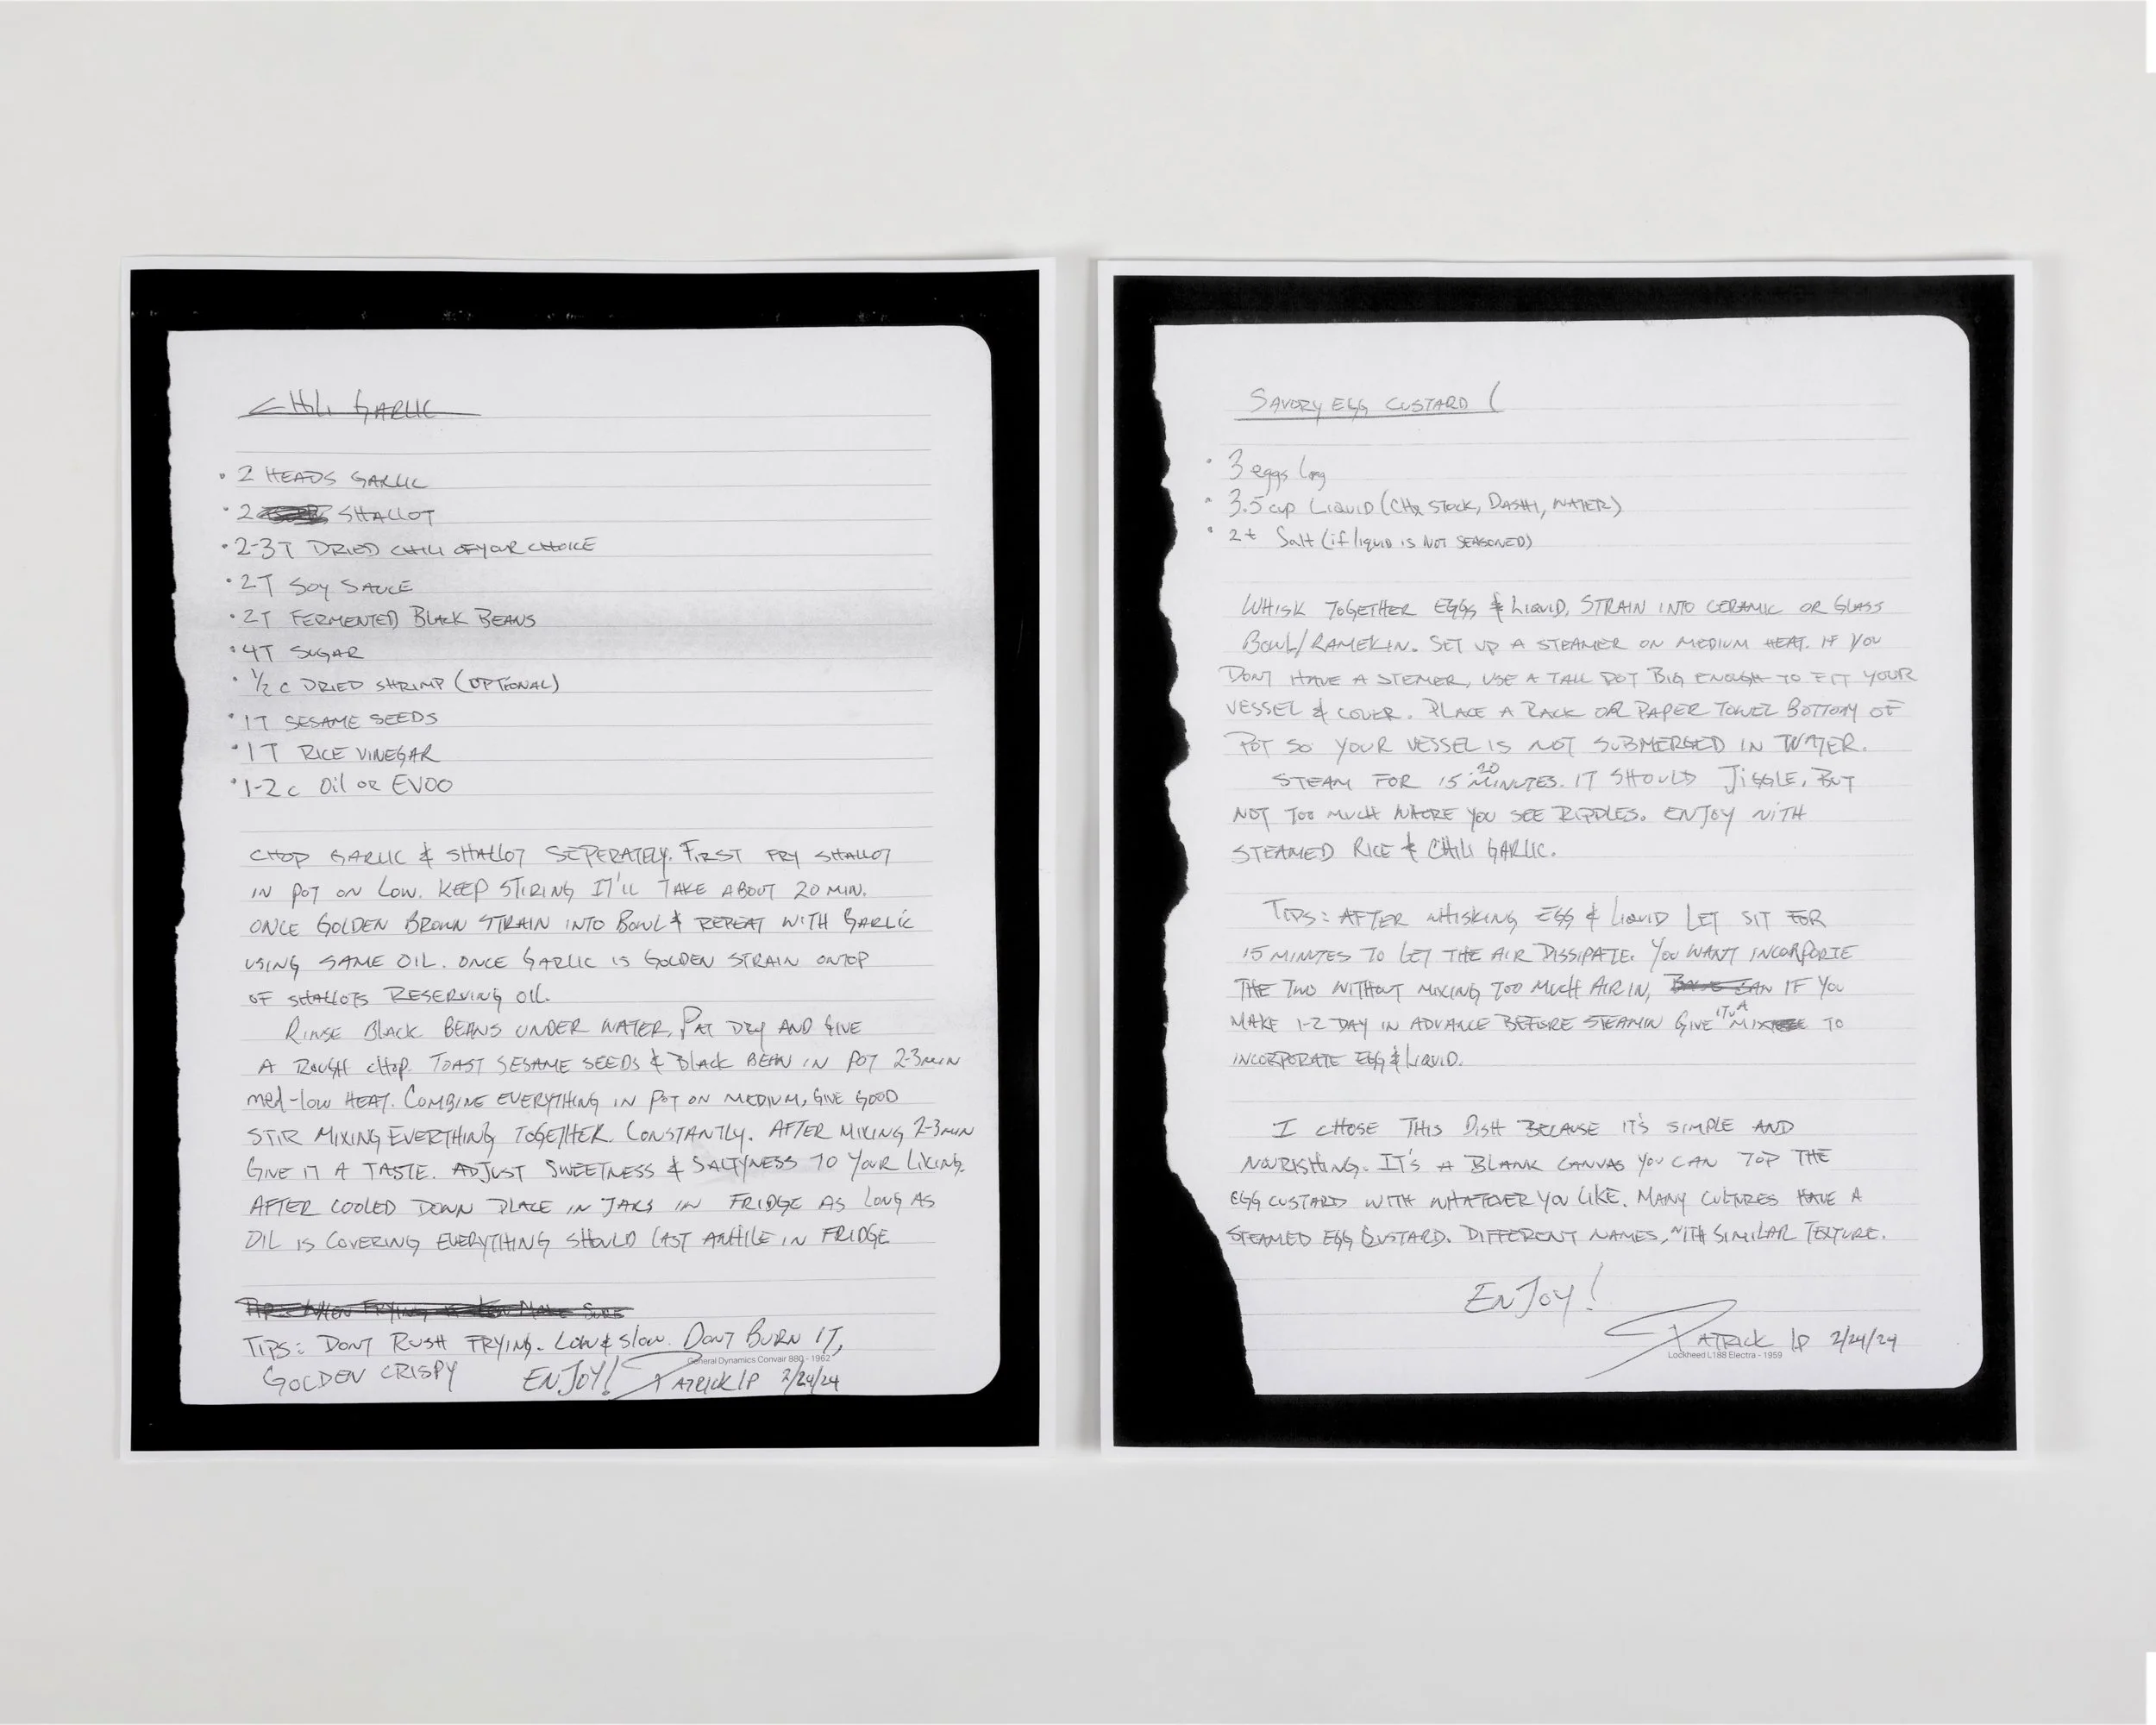 CHILI GARLIC
• 2 HEADS GARLIC
• 2 SHALLOT
• 2-3T DRIED CHILI OF YOUR CHOICE
• 2T SOY SAUCE
• 2T FERMENTED BLACK BEANS
• 4T SUGAR
• 1/2 C DRIED SHRIMP (OPTIONAL)
• 1T SESAME SEEDS
• 1T RICE VINEGAR
• 1-2 c Oil or EVOO
CHOP GARLIC & SHALLOT SEPERATELY. FIRST FRY SHALLOT
IN POT ON LOW. KEEP STIRING IT'LL TAKE ABOUT 20 MIN.
ONCE GOLDEN BROWN STRAIN INTO BOWL & REPEAT WITH GARLIC
USING SAME OIL. ONCE GARLIC IS GOLDEN STRAIN ONTOP
OF SHALLOTS RESERVING OIL.
RINSE BLACK BEANS UNDER WATER, PAT DRY AND GIVE
A ROUGH CHOP. TOAST SESAME SEEDS & BLACK BEAN IN POT 2-3 MIN
med-low HEAT. COMBINE EVERYTHING IN POT ON MEDIUM, GIVE GOOD
STIR MIXING EVERTHING TOGETHER. CONSTANTLY. AFTER MIXING 2-3 MIN
GIVE IT A TASTE. ADJUST SWEETNESS & SALTYNESS TO YOUR LIKING.
AFTER COOLED DOWN PLACE IN JARS IN FRIDGE AS LONG AS
OIL IS COVERING EVERYTHING SHOULD LAST AWHILE IN FRIDGE
TIPS: DONT RUSH FRYING. LOW & SLOW. DONT BURN IT,
GOLDEN CRISPY ENJOY! PATRICK IP 2/24/24
General Dynamics Convair 880 - 1962
SAVORY EGG CUSTARD (
• 3 eggs Lrg
• 3.5 cup LIQUID (CHX STOCK, DASHI, WATER)
• 2t Salt (if liquid IS NOT SEASONED)
WHISK TOGETHER EGGS & LIQUID, STRAIN INTO CERAMIC OR GLASS
BOWL/RAMEKIN. SET UP A STEAMER ON MEDIUM HEAT. IF YOU
DONT HAVE A STEMER, USE A TALL POT BIG ENOUGH TO FIT YOUR
VESSEL & COVER. PLACE A RACK OR PAPER TOWEL BOTTOM OF
POT SO YOUR VESSEL IS NOT SUBMERGED IN WATER.
STEAM FOR 15-20 MINUTES. IT SHOULD JIGGLE, BUT
NOT TOO MUCH WHERE YOU SEE RIPPLES. ENJOY WITH
STEAMED RICE & CHILI GARLIC.
TIPS: AFTER WHISKING EGG & LIQUID LET SIT FOR
15 MINUTES TO LET THE AIR DISSIPATE. YOU WANT INCORPORTE
THE TWO WITHOUT MIXING TOO MUCH AIR IN, IF YOU
MAKE 1-2 DAY IN ADVANCE BEFORE STEAMIN GIVE IT A MIX TO
INCORPORATE EGG & LIQUID.
I CHOSE THIS DISH BECAUSE IT'S SIMPLE AND
NOURISHING. IT'S A BLANK CANVAS YOU CAN TOP THE
EGG CUSTARD WITH WHATEVER YOU LIKE. MANY CULTURES HAVE A
STEAMED EGG CUSTARD. DIFFERENT NAMES, WITH SIMILAR TEXTURE.
ENJOY!
PATRICK IP 2/24/24
Lockheed L188 Electra - 1959